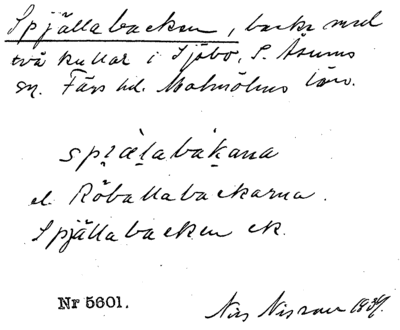 Spjällabacken, backe med
två kullar i Sjöbo, S. Åsums
sn. Färs hd. Malmöhus län.
spi̯äl̯abák̯ana
el. Röballabackarna.
Spjällabacken ek.
Nr 5601.
Nils Nisson